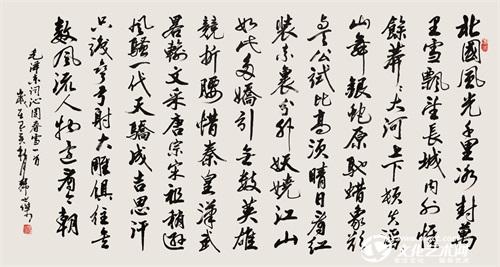 北國風光千里冰封萬
里雪飄望長城內外惟
餘莽〻大河上下頓失滔〻
山舞銀蛇原馳蜡象欲
與天公試比高須晴日看紅
裝素裹分外妖嬈江山
如此多嬌引無數英雄
競折腰惜秦皇漢武
略輸文采唐宗宋祖稍遜
風騷一代天驕成吉思汗
只識彎弓射大雕俱往矣
數風流人物還看今朝
毛澤東詞沁園春雪一首
歲在己亥
文化艺术网